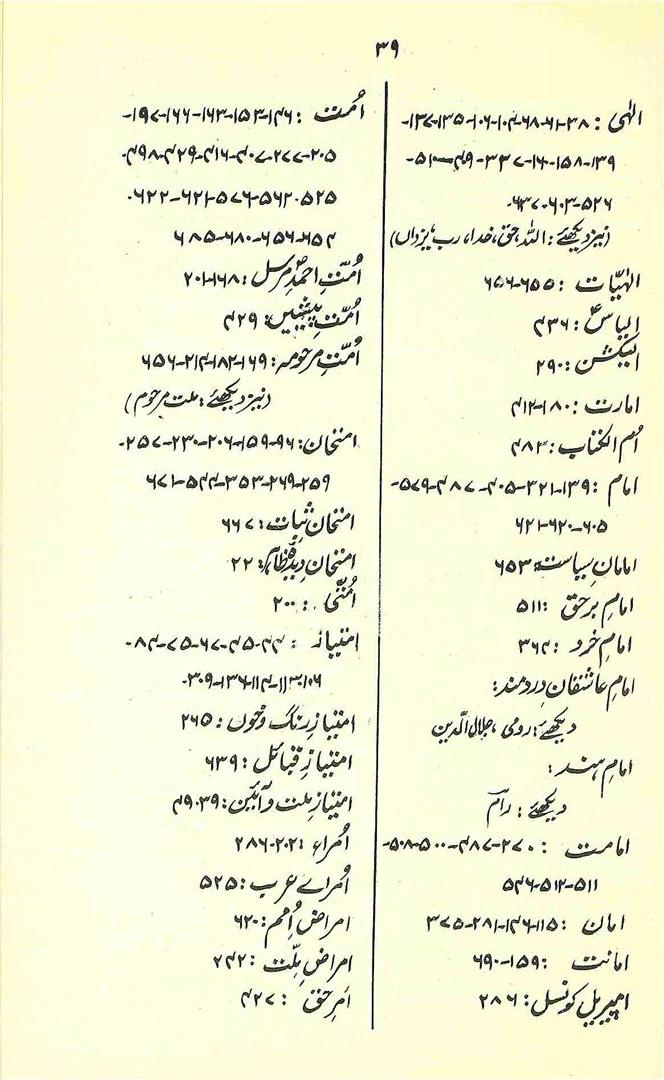 ۳۹
الٰہی : ۳۸-۶۱-۶۸-۱۰۴-۱۰۶-۱۳۵-۱۳۷-
۱۳۹-۱۵۸-۱۶-۳۳۷-۴۹-۵۱۰-
۵۲۶-۶۰۳-۶۳۷-
(نیز دیکھئے : اللہ، حق، خدا، رب، یزداں)
الٰہیّات : ۶۵۵-۶۵۶
الیاسؑ : ۴۳۶
الیکشن : ۲۹۰
امارت : ۱۸۰-۴۱۲
اُم الکتاب : ۴۸۳
امام : ۱۳۹-۳۲۱-۴۰۵-۴۸۷-۵۷۹-
۶۰۵-۶۲۰-۶۲۱
امامانِ سیاست : ۶۵۳
امامِ برحق : ۵۱۱
امامِ خرد : ۳۶۴
امامِ عاشقانِ دردمند :
دیکھئے : رومی، جلال الدّین
امامِ ہند :
دیکھئے : رام
امامت : ۲۷۰-۴۸۷-۵۰۰-۵۰۸-
۵۱۱-۵۱۲-۵۴۶
امان : ۱۱۵-۱۴۶-۲۸۱-۳۷۵
امانت : ۱۵۹-۶۹۰
امپیریل کونسل : ۲۸۶
اُمّت : ۱۴۶-۱۵۳-۱۶۳-۱۶۶-۱۹۷-
۲۰۵-۲۷۷-۴۰۷-۴۱۶-۴۲۹-۴۹۸-
۵۲۵-۵۶۲-۵۷۶-۶۲۱-۶۲۲-
۶۵۴-۶۵۶-۶۸۰-۶۸۵
اُمّتِ احمدِ مرسلؐ : ۱۶۸-۲۰۱
اُمّتِ پیشیں : ۴۲۹
اُمّتِ مرحومہ : ۱۶۹-۱۸۲-۲۱۴-۶۵۶
(نیز دیکھئے : ملت مرحوم)
امتحان : ۹۶-۱۵۹-۲۰۶-۲۳۰-۲۵۷-
۲۵۹-۲۶۹-۳۵۳-۵۴۴-۶۷۱
امتحانِ ثبات : ۶۶۷
امتحانِ دیدۂ ظاہر : ۲۲
اُمّتی : ۲۰۰
امتیاز : ۴۴-۴۵-۶۷-۷۵-۸۴-
۱۰۶-۱۱۳-۱۱۴-۱۳۶-۳۰۹-
امتیازِ رنگ و خوں : ۲۶۵
امتیازِ قبائل : ۶۳۹
امتیازِ ملت و آئین : ۳۹-۴۹
اُمراء : ۲۰۲-۲۸۶
اُمرائے عرب : ۵۲۵
امراضِ اُمم : ۶۲۰
امراضِ ملّت : ۲۴۲
امرِ حق : ۴۲۷